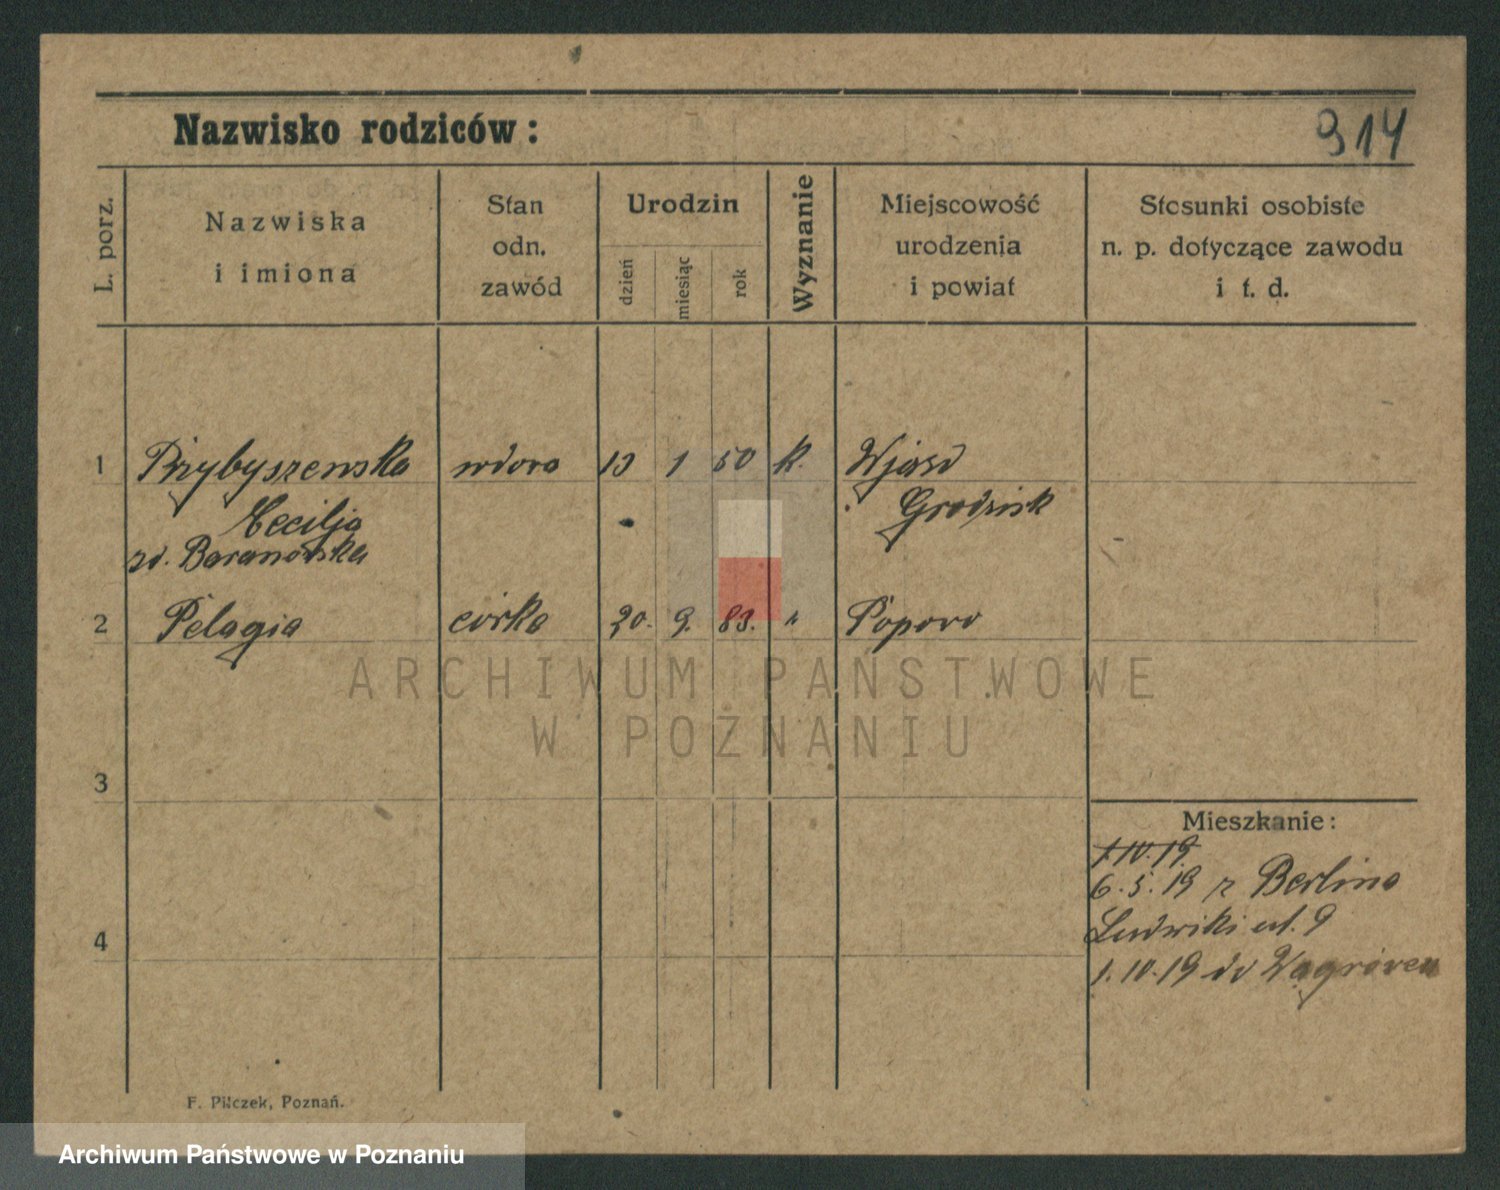 Nazwisko rodziców:
914
L. porz.
Nazwiska
i imiona
Stan
odn.
zawód
Urodzin
dzień
miesiąc
rok
Wyznanie
Miejscowość
urodzenia
i powiat
Stosunki osobiste
n. p. dotyczące zawodu
i t. d.
1 Przybyszewska wdowa 1 50 k.
Grodzisk
Cecilja
Baranowska
2 Pelagia córka 20. 9. 83. " Popowo
ARCHIWUM PAŃSTWOWE
W POZNANIU
3
Mieszkanie:
1.10.19
6.5.19 z Berlina
Ludwiki ul. 9
4
1.10.19 do
F. Pilczek, Poznań.
Archiwum Państwowe w Poznaniu